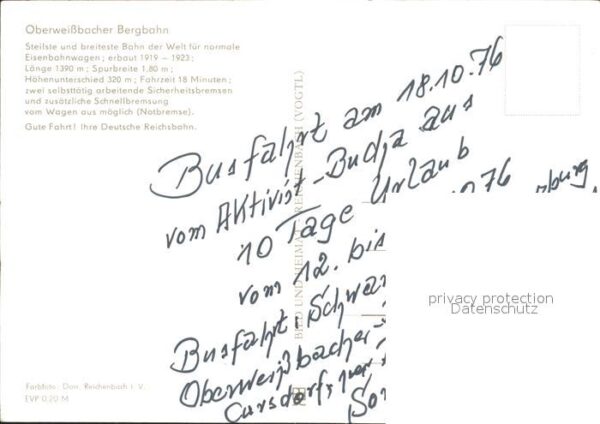 Oberweißbacher Bergbahn
Steilste und breiteste Bahn der Welt für normale
Eisenbahnwagen; erbaut 1919 – 1923;
Länge 1390 m; Spurbreite 1,80 m;
Höhenunterschied 320 m; Fahrzeit 18 Minuten;
zwei selbsttätig arbeitende Sicherheitsbremsen
und zusätzliche Schnellbremsung
vom Wagen aus möglich (Notbremse).
Gute Fahrt! Ihre Deutsche Reichsbahn.
Busfahrt am 18.10.76
vom Aktivist-Budja aus
10 Tage Urlaub
vom 12. bis
Busfahrt-Schwar
Oberweißbacher-
Cursdorf
BILD UND HEIMAT REICHENBACH (VOGTL)
Farbfoto: Darr, Reichenbach i. V.
EVP 0,20 M
privacy protection
Datenschutz